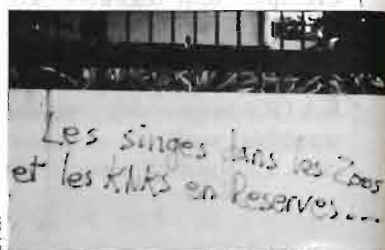 Les singes dans les Zoos
et les KNKs en Reserves...